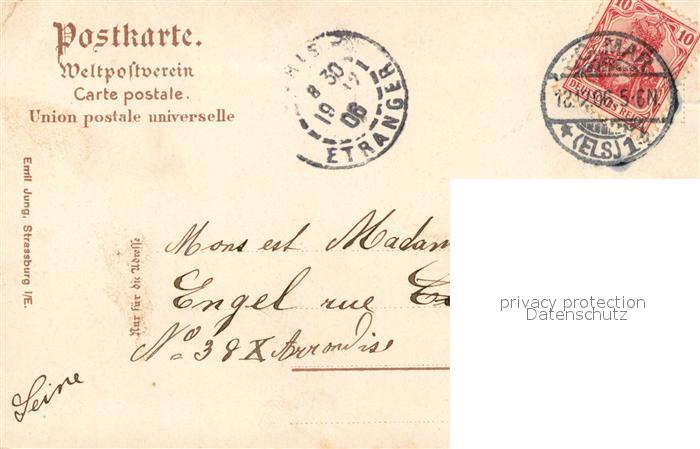 Postkarte.
Weltpostverein
Carte postale.
Union postale universelle
Emil Jung, Strassburg i/E.
Nur für die Adresse
8 30
19 12
06
ETRANGER
10 10
DEUTSCHES REICH
COLMAR
06.5-6N.
*(ELS)1
Mons est Madam
Engel rue
No 38 X Arrondise
Seine
privacy protection
Datenschutz